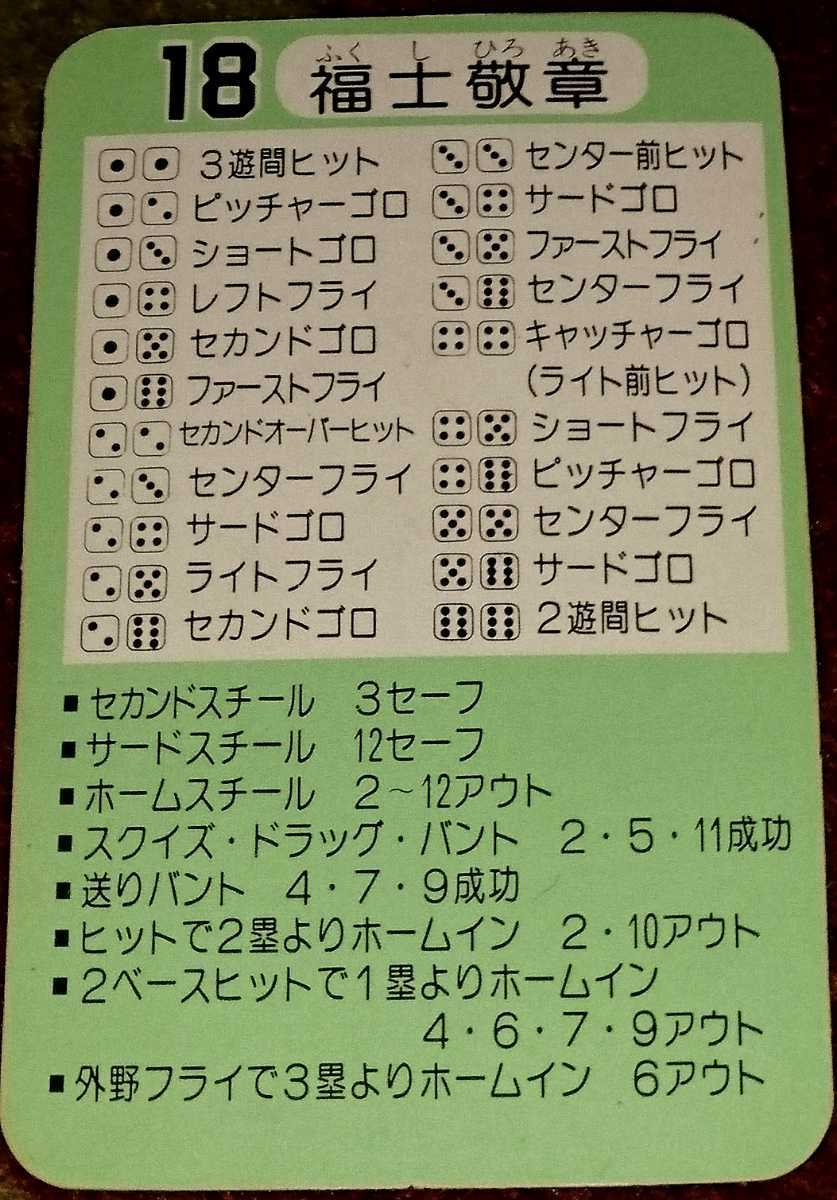 18
ふく し ひろ あき
福士敬章
3遊間ヒット
ピッチャーゴロ
ショートゴロ
レフトフライ
セカンドゴロ
ファーストフライ
セカンドオーバーヒット
センターフライ
サードゴロ
ライトフライ
セカンドゴロ
センター前ヒット
サードゴロ
ファーストフライ
センターフライ
キャッチャーゴロ
(ライト前ヒット)
ショートフライ
ピッチャーゴロ
センターフライ
サードゴロ
2遊間ヒット
■セカンドスチール 3セーフ
■サードスチール 12セーフ
■ホームスチール 2~12アウト
■スクイズ・ドラッグ・バント 2・5・11成功
■送りバント 4・7・9成功
■ヒットで2塁よりホームイン 2・10アウト
■2ベースヒットで1塁よりホームイン
4・6・7・9アウト
■外野フライで3塁よりホームイン 6アウト